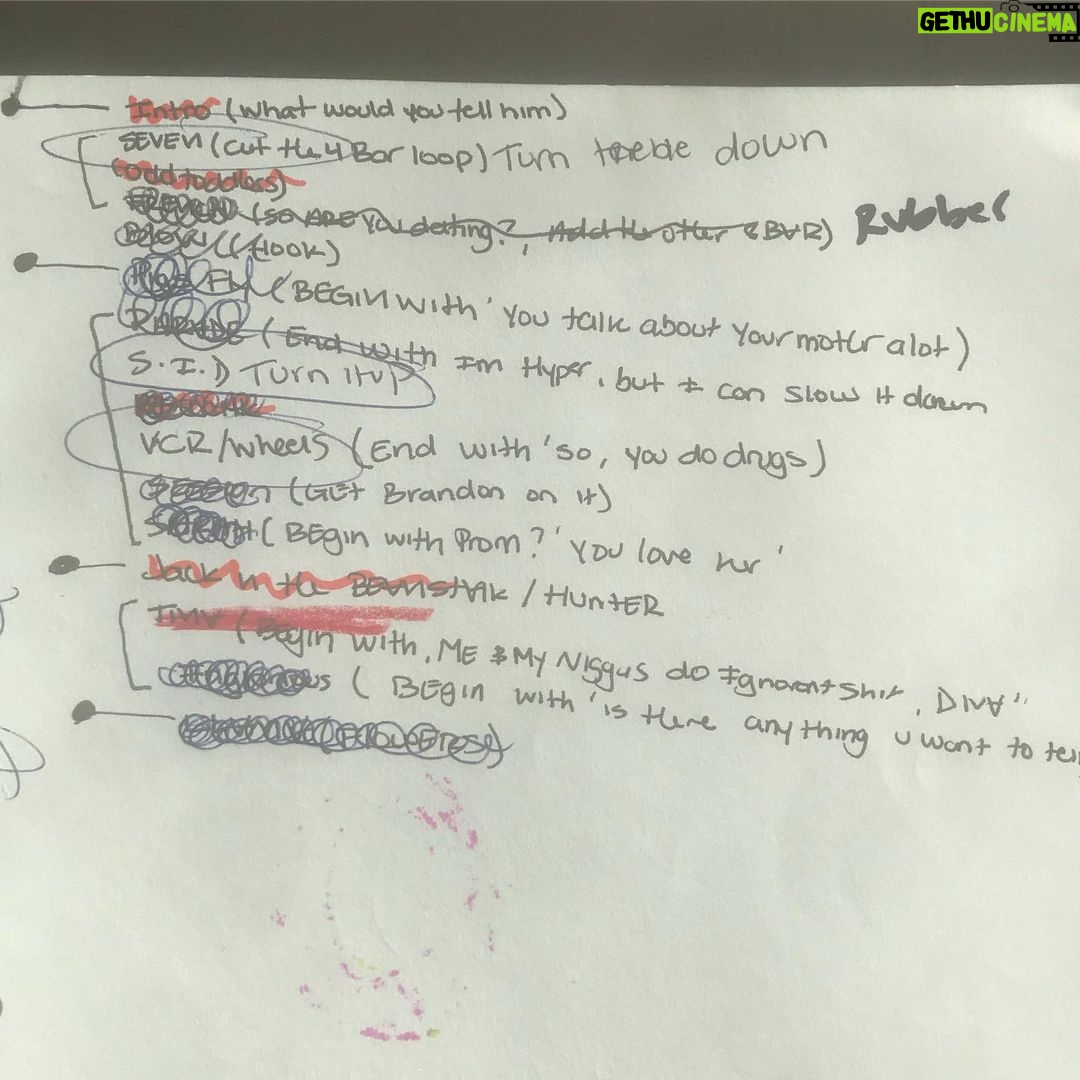 GETHUCINEMA
Intro (what would you tell him)
SEVEN (cut the 4 Bar loop) Turn treble down
(odd toddlers)
(so ARE You dating?, Add the other 2 BAR) Rubber
(Hook)
Pigs Fly (BEGIN with 'You talk about your mother alot)
PARADE (End with Im Hyper, but I can slow it down
S.I.D Turn it up
VCR/wheels (End with 'so, you do drugs)
SESSION (GEt Brandon on it)
SARAH (BEgin with Prom?' You love her'
Jack in the BEANSTAlk / HUNTER
(Begin with, ME & My Niggus do Ignorant Shit,
(BEgin with 'is there any thing u want to tell